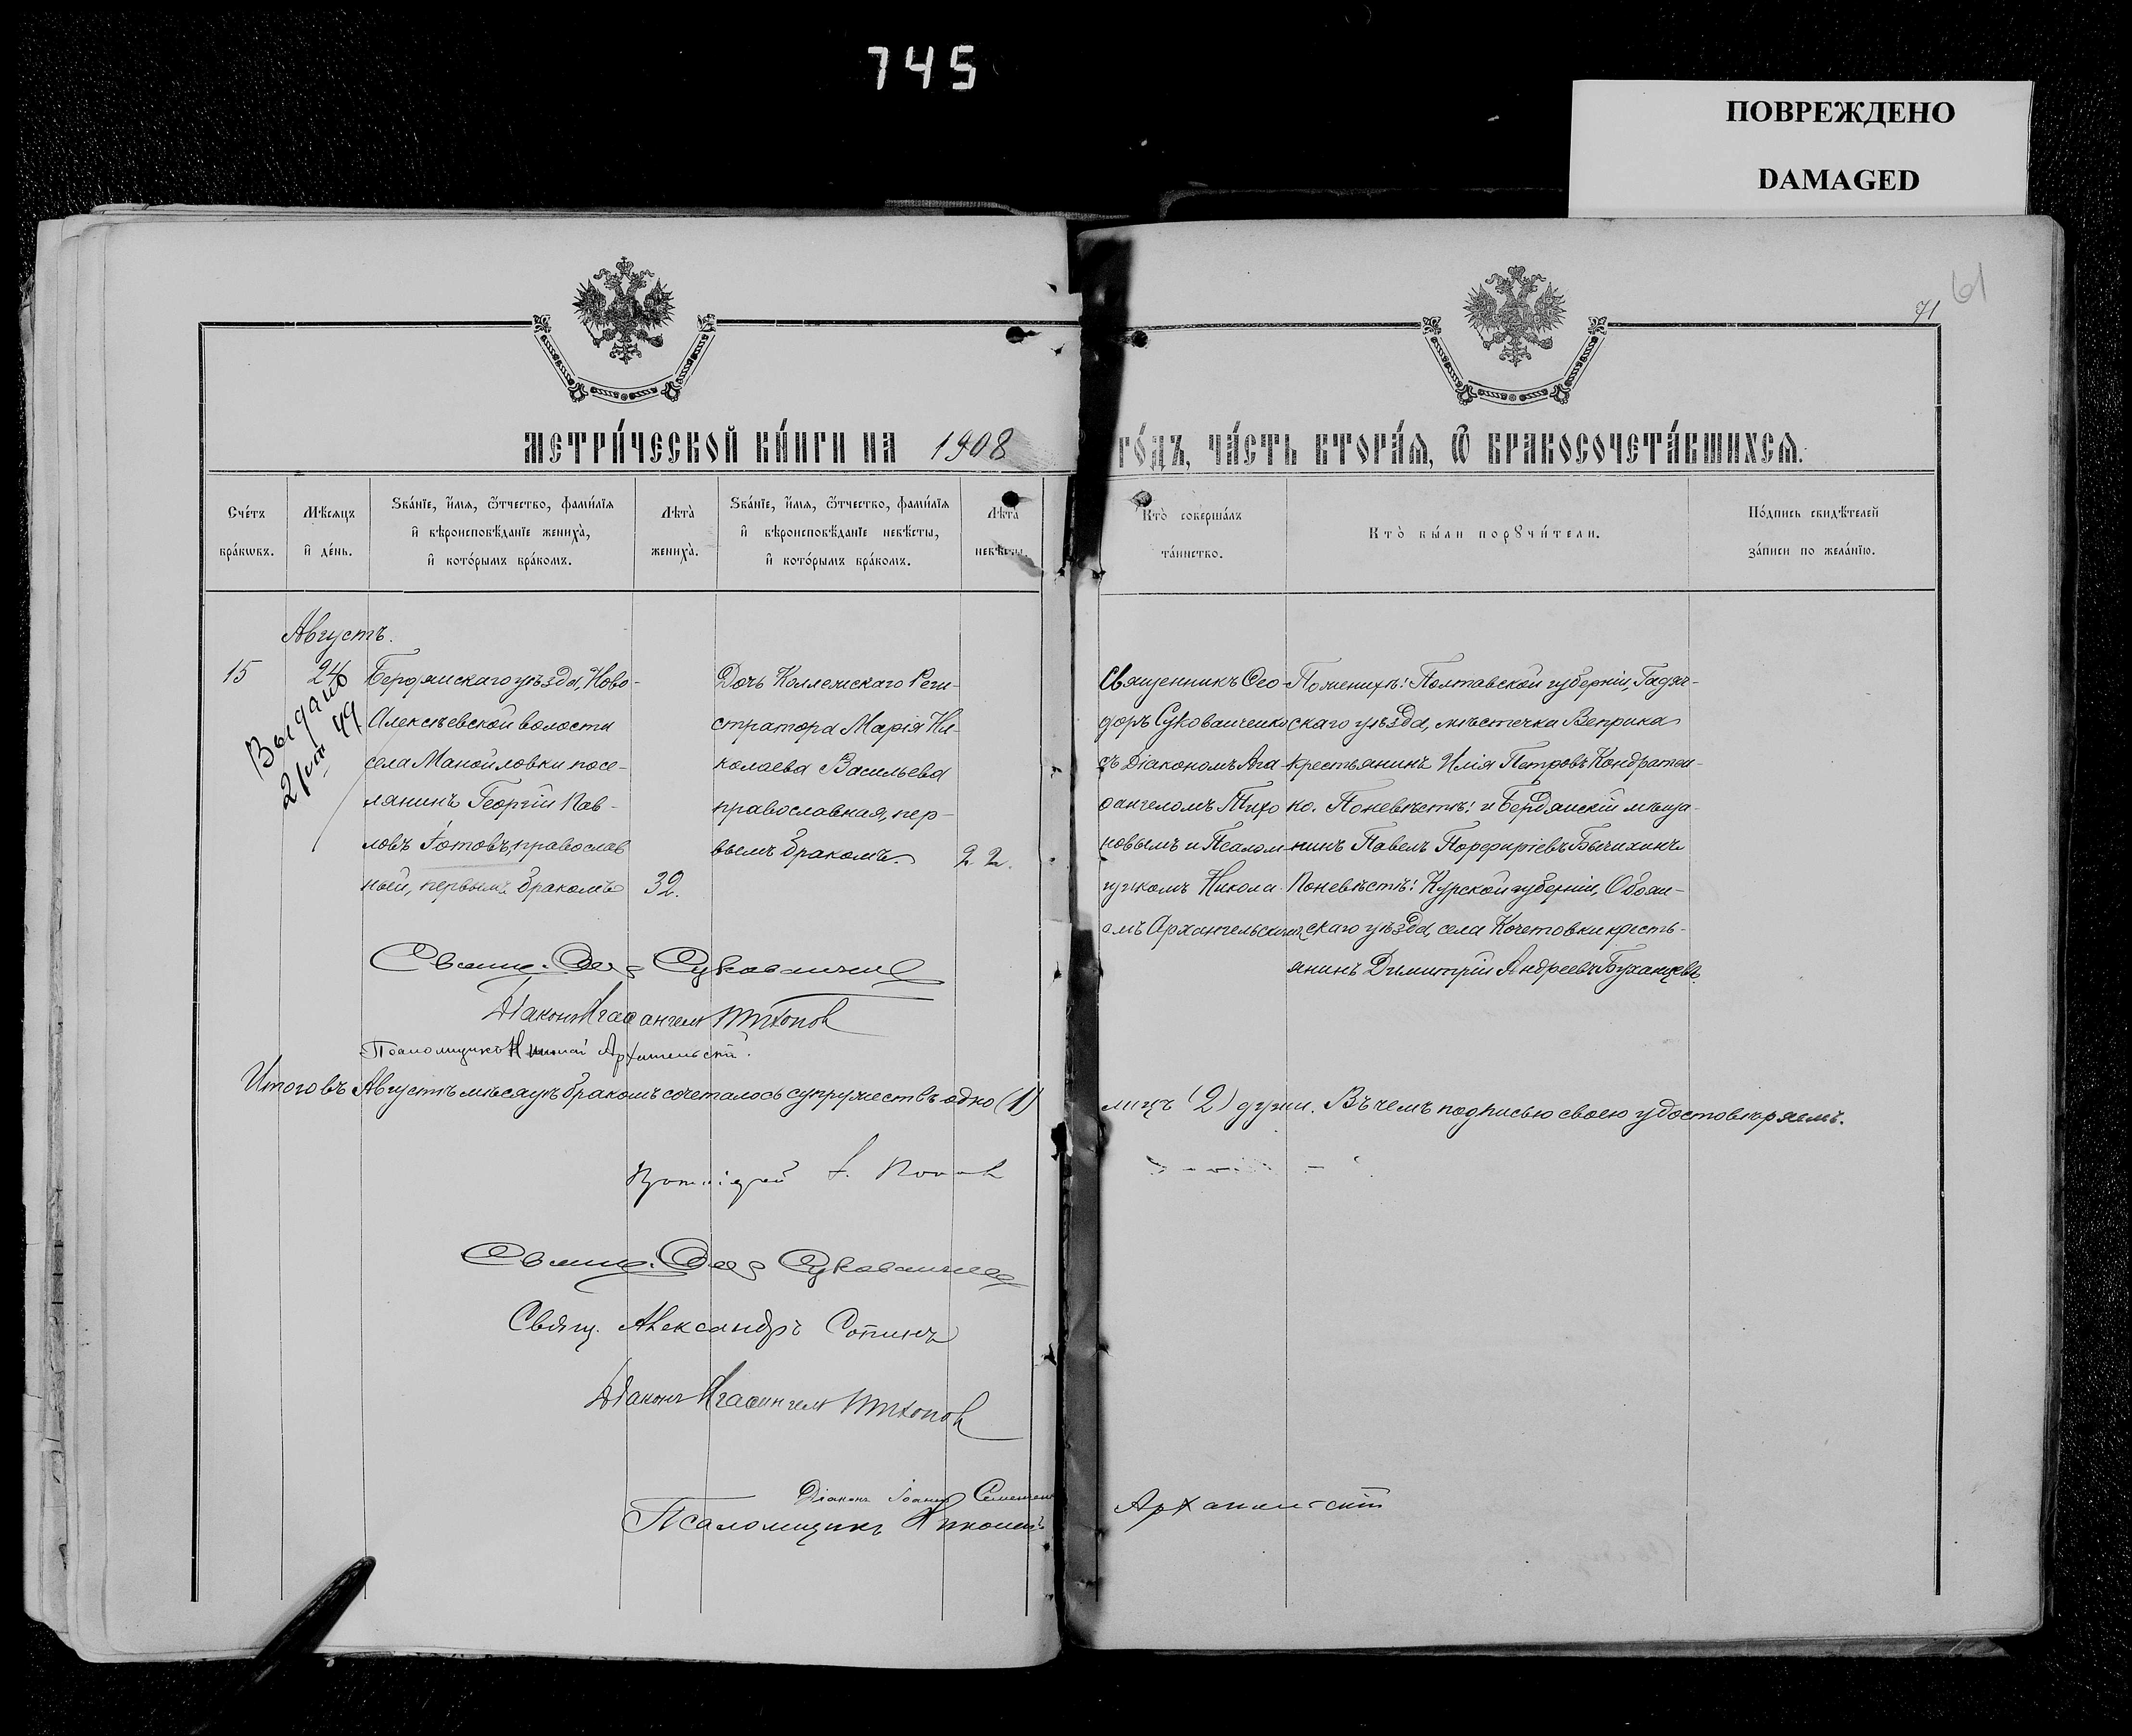 745
ПОВРЕЖДЕНО
DAMAGED
61
71
МЕТРИ́ЧЕСКОЙ КНИ́ГИ НА 1908 ГО́ДЪ, ЧА́СТЬ ВТОРА́Я, Ѿ БРАКОСОЧЕТА́ВШИХСЯ.
Сче́тъ бра́кѡвъ.
Мѣ́сяцъ и҆ де́нь.
Ѕва́нїе, и҆́мя, ѻ҆́тчество, фами́лїя и҆ вѣроисповѣ́данїе жениха̀, и҆ кото́рымъ бра́комъ.
Лѣ́та жениха̀.
Ѕва́нїе, и҆́мя, ѻ҆́тчество, фами́лїя и҆ вѣроисповѣ́данїе невѣ́сты, и҆ кото́рымъ бра́комъ.
Лѣ́та невѣ́сты.
Кто̀ соверша́лъ та́инство.
Кто̀ бы́ли порꙋчи́тели.
По́дпись свидѣ́телей за́писи по жела́нїю.
Августъ.
15
24
Выдано
2/VIII 49
Бердянскаго уѣзда, Ново-
Алексѣевской волости
села Мануйловки посе-
лянинъ Георгій Пав-
ловъ Готовъ, православ
ный, первымъ бракомъ
32.
Дочь Коллежскаго Реги-
стратора Марія Ни-
колаева Васильева
православная, пер-
вымъ бракомъ
22.
Священникъ Ѳео-
доръ Сукованченко
съ Діакономъ Ага-
ѳангеломъ Тихо
новымъ и Псалом-
щикомъ Никола-
емъ Архангельскимъ
По женихѣ: Полтавской губерніи, Гадяч-
скаго уѣзда, мѣстечка Веприка
крестьянинъ Илія Петровъ Кондратен-
ко. По невѣстѣ: и Бердянскій мѣща-
нинъ Павелъ Порфиріевъ Бычихинъ
По невѣстѣ: Курской губерніи, Обоян-
скаго уѣзда, села Кочетовки кресть-
янинъ Димитрій Андреевъ Буханцевъ.
Свящ. Ѳео Сукованченко
Діаконъ Агаѳангелъ Тихонов
Псаломщикъ Николай Архангельскій.
Итого въ Августѣ мѣсяцѣ бракомъ сочеталось супружествъ одно (1) лицъ (2) души. Въ чемъ подписью своею удостовѣряемъ.
Протоіерей
Свящ. Ѳео Сукованченко
Свящ. Александръ Сопинъ
Діаконъ Агаѳангелъ Тихонов
Діаконъ Іоаннъ
Псаломщикъ Николай Архангельскій